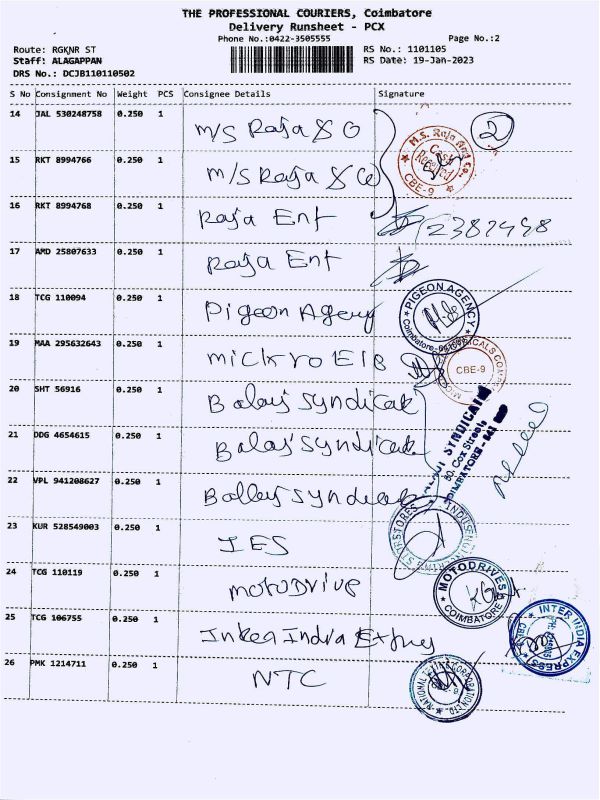 THE PROFESSIONAL COURIERS, Coimbatore
Delivery Runsheet - PCX
Phone No.:0422-3505555 Page No.:2
Route: RGKNR ST RS No.: 1101105
Staff: ALAGAPPAN RS Date: 19-Jan-2023
DRS No.: DCJB110110502
S No Consignment No Weight PCS Consignee Details Signature
14 JAL 530248758 0.250 1 M/S Raja & Co 2
M.S. Raja And Co. Cash Received CBE-9
15 RKT 8994766 0.250 1 M/S Raja & Co
16 RKT 8994768 0.250 1 Raja Ent
17 ARD 25807633 0.250 1 Raja Ent
18 TCG 110094 0.250 1 Pigeon Agency
PIGEON AGENCY Coimbatore
19 MAA 295632643 0.250 1 Mickro Els
CBE-9
20 SHT 56916 0.250 1 Balaji Syndicat
21 DDG 4654615 0.250 1 Balaji Syndicat
SYNDICATE
80, Cox Street,
COIMBATORE - 641
22 VPL 941208627 0.250 1 Balaji Syndicat
23 KUR 528549003 0.250 1 IES
24 TCG 110119 0.250 1 MotoDrive
MOTODRIVES COIMBATORE
25 TCG 106755 0.250 1 Inter India Express
INTER INDIA EXPRESS
26 PMK 1214711 0.250 1 NTC
NATIONAL CORPORATION